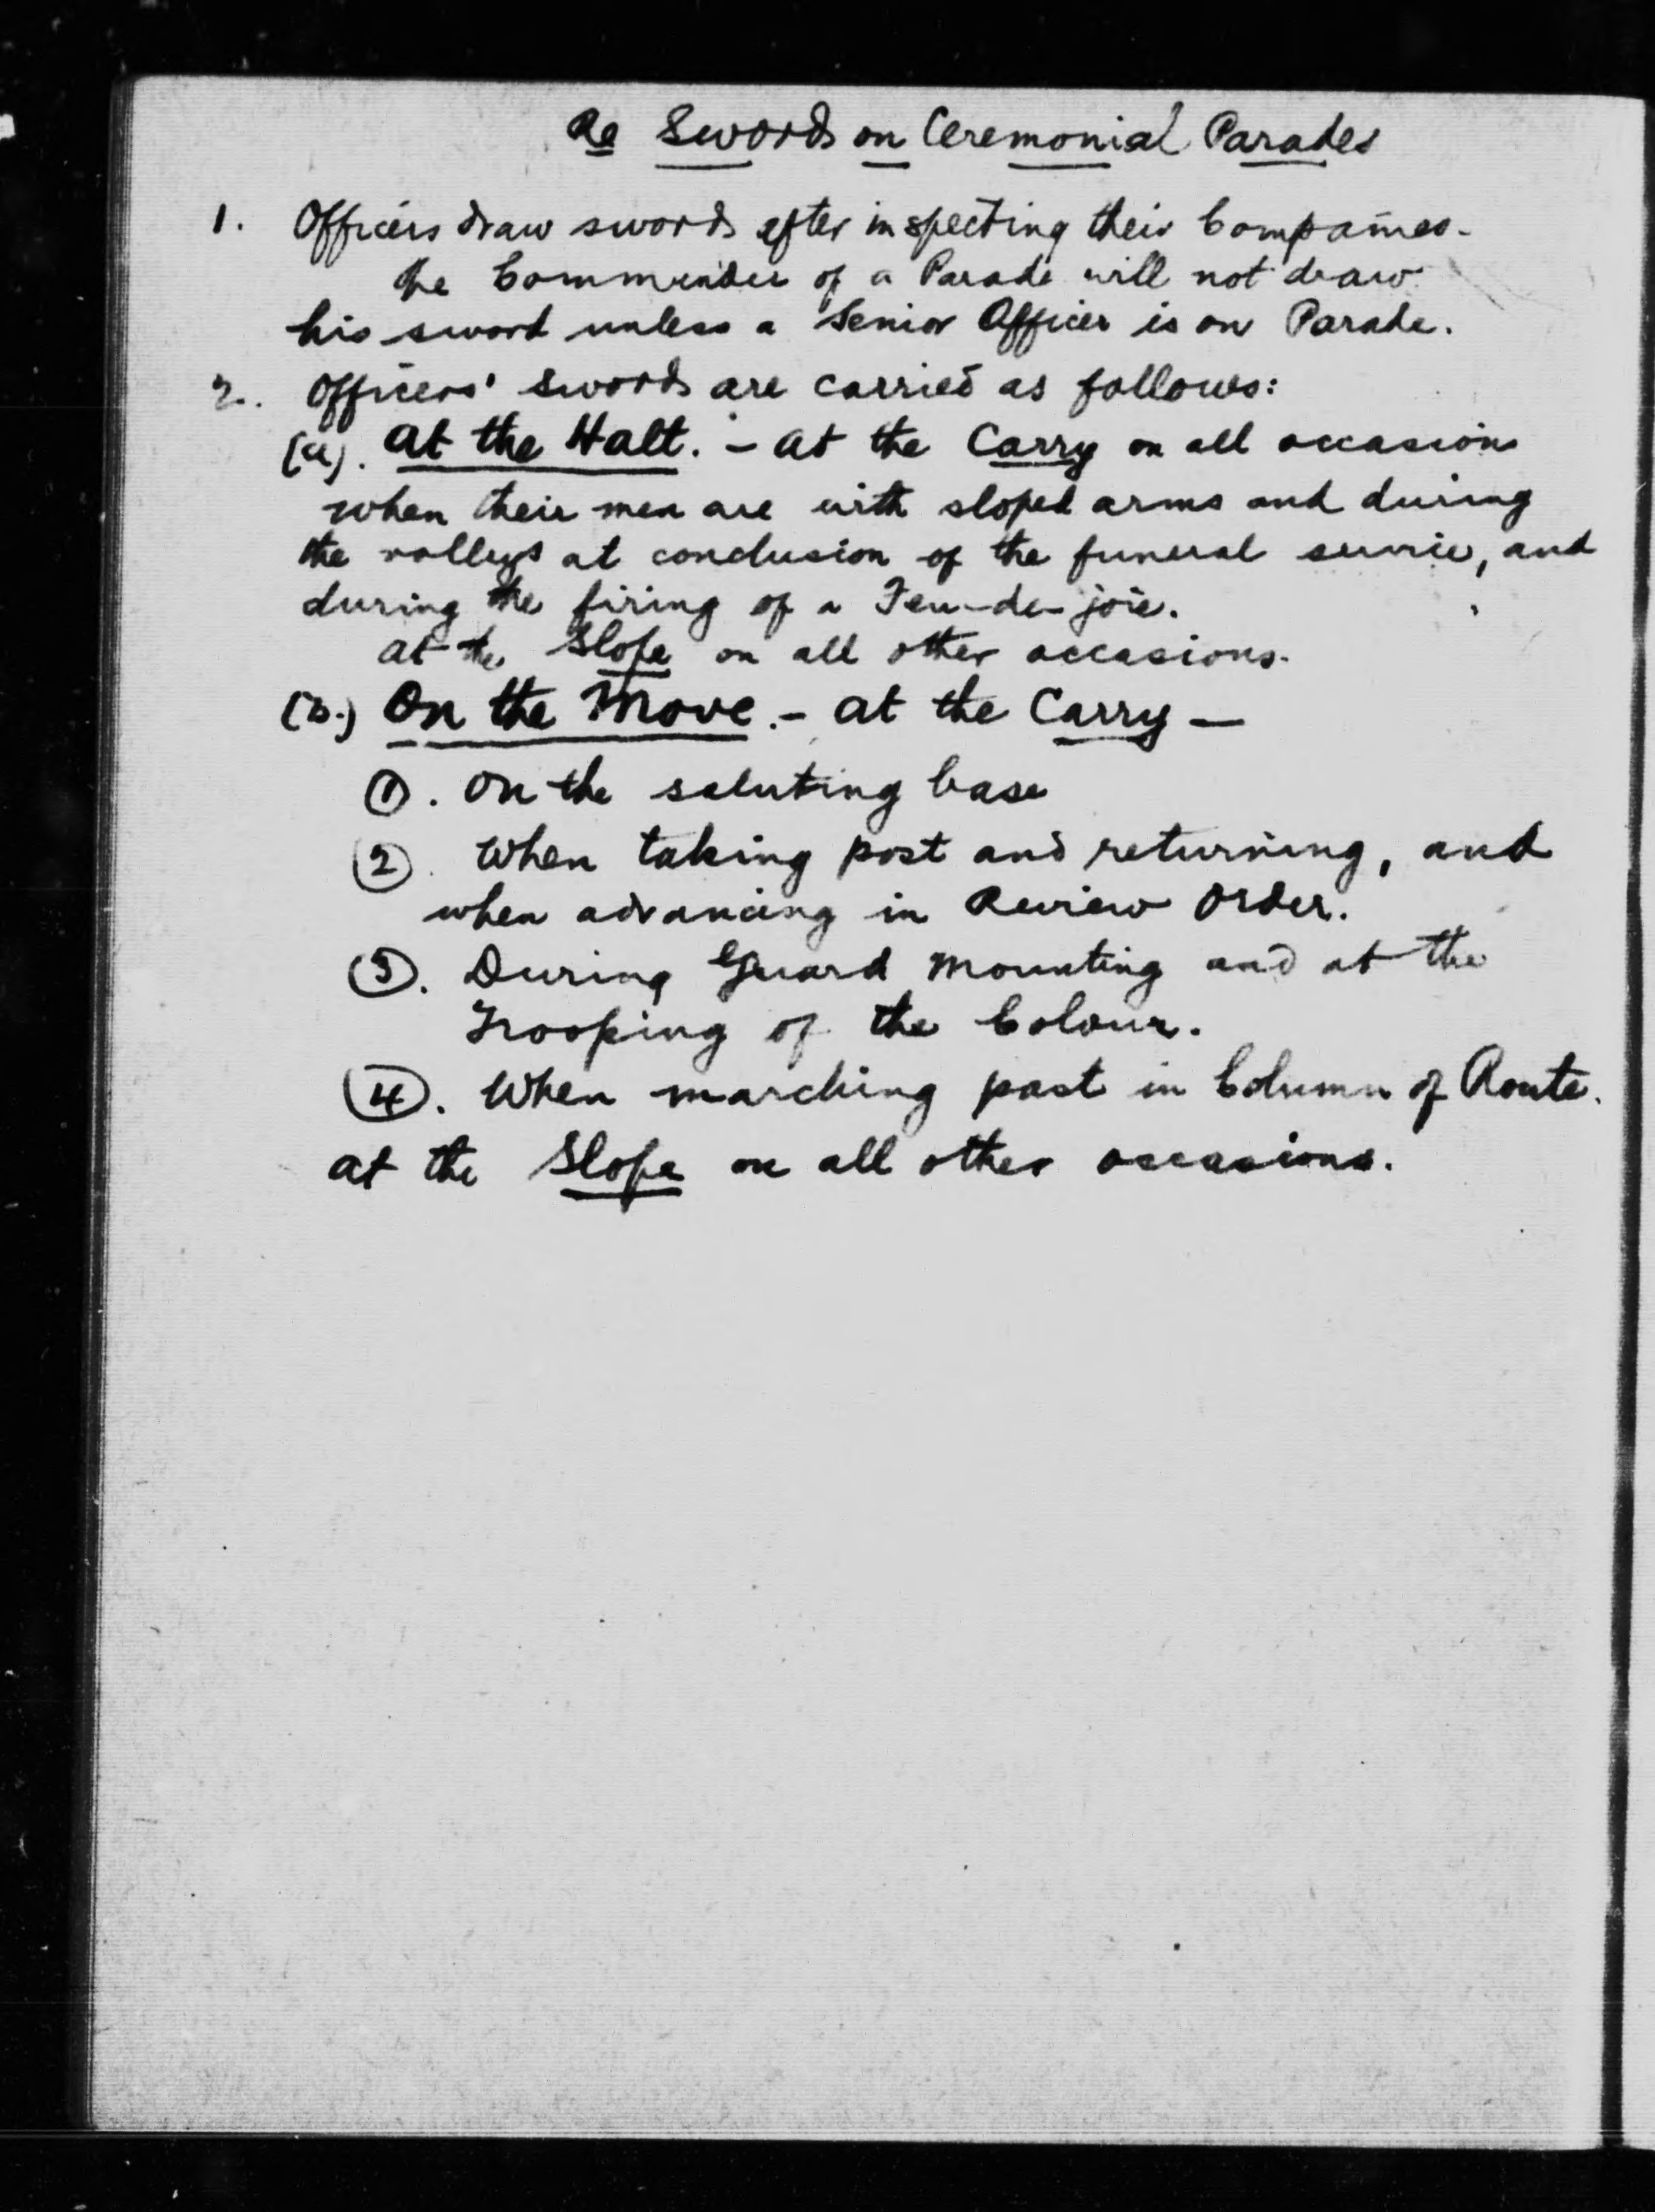 Re Swords on Ceremonial Parades
1. Officers draw swords after inspecting their Companies.
The Commander of a Parade will not draw
his sword unless a Senior Officer is on Parade.
2. Officers' swords are carried as follows:
(a). At the Halt. - at the Carry on all occasions
when their men are with sloped arms and during
the volleys at conclusion of the funeral service, and
during the firing of a Feu-de-joie.
at the Slope on all other occasions.
(B.) On the Move. - at the Carry —
①. On the saluting base
②. When taking post and returning, and
when advancing in Review Order.
③. During Guard Mounting and at the
Trooping of the Colour.
④. When marching past in Column of Route.
at the Slope on all other occasions.